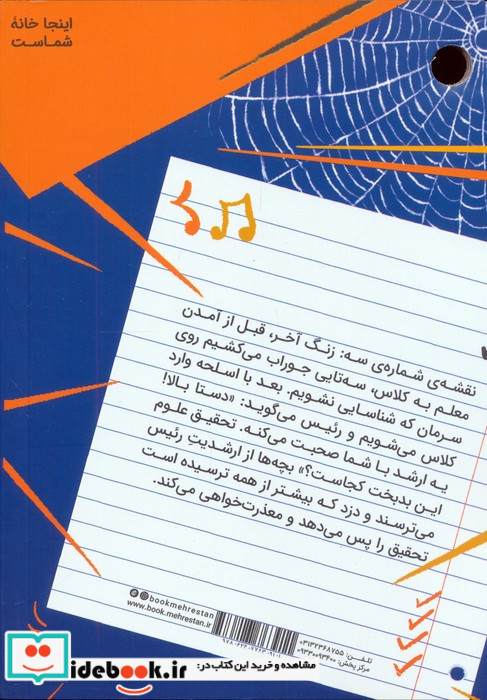 اینجا خانهٔ
شماست
نقشه‌ی شماره‌ی سه: زنگ آخر، قبل از آمدن
معلم به کلاس، سه‌تایی جوراب می‌کشیم روی
سرمان که شناسایی نشویم. بعد با اسلحه وارد
کلاس می‌شویم و رئیس می‌گوید: «دستا بالا!
یه ارشد با شما صحبت می‌کنه. تحقیق علوم
این بدبخت کجاست؟» بچه‌ها از ارشدیتِ رئیس
می‌ترسند و دزد که بیشتر از همه ترسیده است
تحقیق را پس می‌دهد و معذرت‌خواهی می‌کند.
@bookmehrestan
www.book.mehrestan.ir
تلفن: ۰۳۱۳۲۳۶۸۷۵۵
مرکز پخش: ۰۹۳۳۰۰۹۳۴۰۰
مشاهده و خرید این کتاب در:
idebook.ir